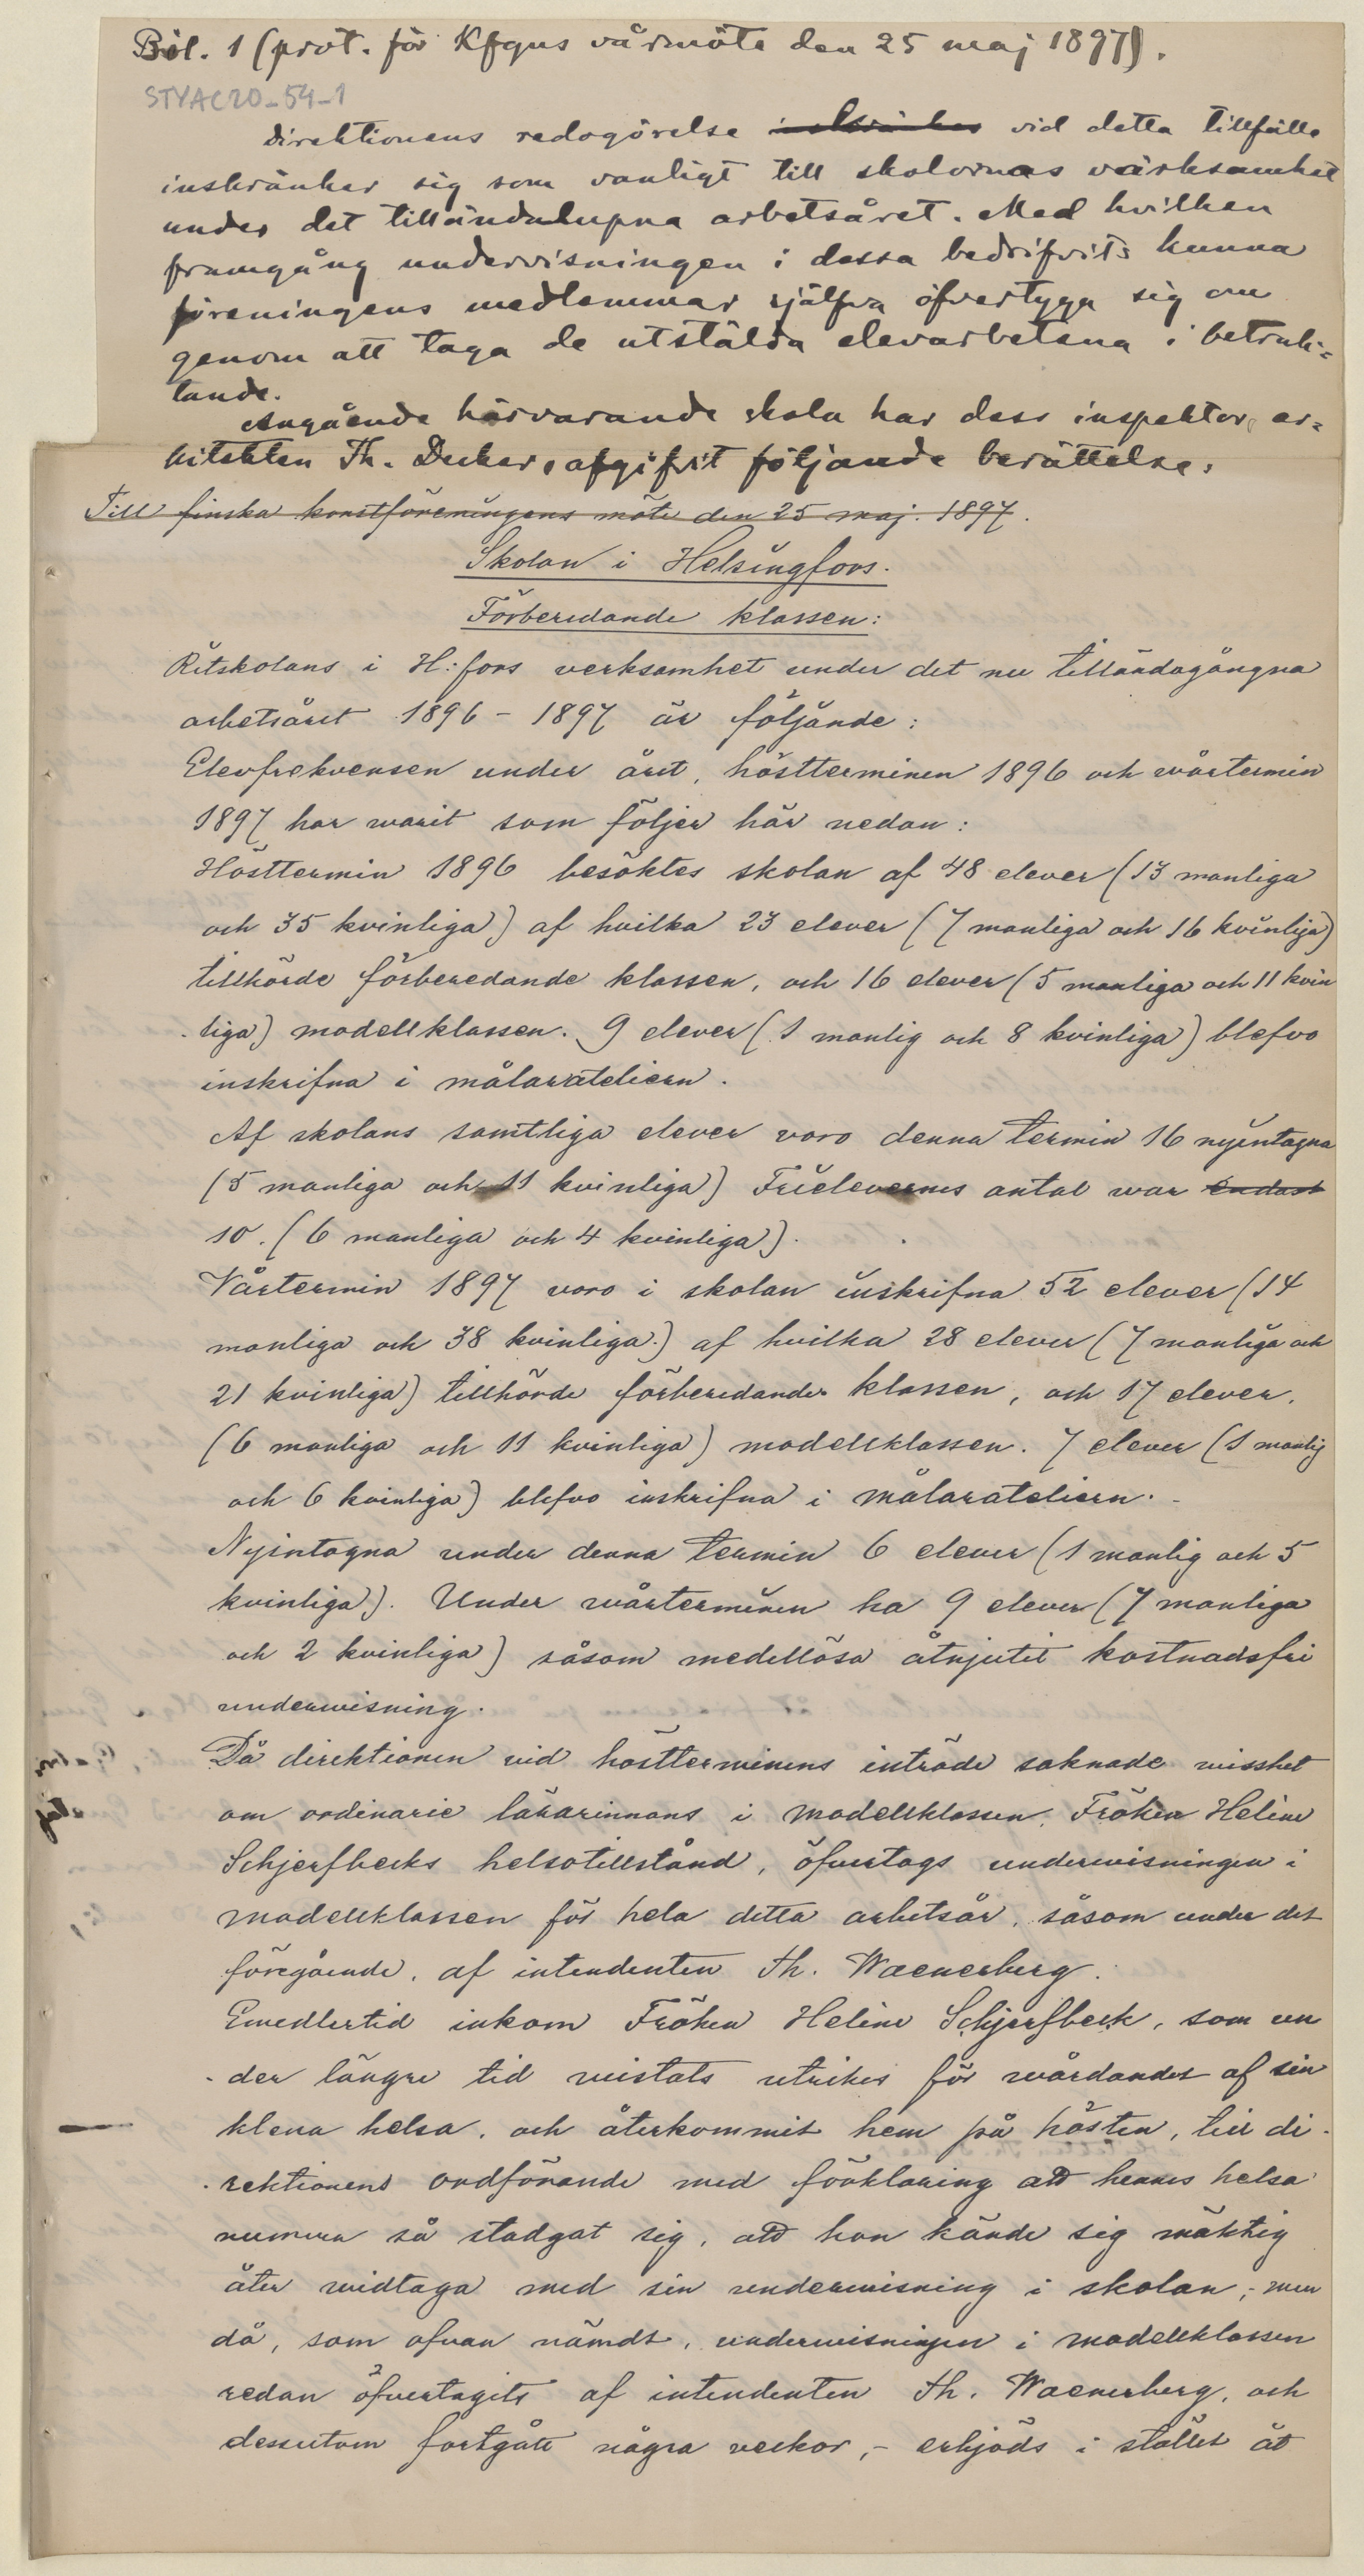 Bil. 1 (prot. för Kfgns vårmöte den 25 maj 1897).
STYAC20_54_1
Direktionens redogörelse inskränker vid detta tillfälle
inskränker sig som vanligt till skolornas värksamhet
under det tilländalupna arbetsåret. Med hvilken
framgång undervisningen i dessa bedrifvits kunna
föreningens medlemmar själfva öfvertyga sig om
genom att taga de utstälda elevarbetena i betrak-
tande.
Angående härvarande skola har dess inspektor, ar-
kitekten Th. Decker, afgifvit följande berättelse:
Till finska konstföreningens möte den 25 maj. 1897.
Skolan i Helsingfors.
Förberedande klassen:
Ritskolans i H:fors verksamhet under det nu tilländagångna
arbetsåret 1896 - 1897 är följande:
Elevfrekvensen under året, höstterminen 1896 och wårtermin
1897 har warit som följer här nedan:
Hösttermin 1896 besöktes skolan af 48 elever (13 manliga
och 35 kvinliga) af hvilka 23 elever (7 manliga och 16 kvinliga)
tillhörde förberedande klassen, och 16 elever (5 manliga och 11 kvin
-liga) modellklassen. 9 elever (1 manlig och 8 kvinliga) blefvo
inskrifna i målarateliern.
Af skolans samtliga elever voro denna termin 16 nyintagna
(5 manliga och 11 kvinliga) Frielevernes antal war endast
10. (6 manliga och 4 kvinliga).
Vårtermin 1897 voro i skolan inskrifna 52 elever (14
manliga och 38 kvinliga.) af hvilka 28 elever (7 manliga och
21 kvinliga) tillhörde förberedande klassen, och 17 elever.
(6 manliga och 11 kvinliga) modellklassen. 7 elever (1 manlig
och 6 kvinliga) blefvo inskrifna i målarateliern.
Nyintagna under denna termin 6 elever (1 manlig och 5
kvinliga). Under wårterminen ha 9 elever (7 manliga
och 2 kvinliga) såsom medellösa åtnjutit kostnadsfri
underwisning.
Då direktionen vid höstterminens inträde saknade visshet
om ordinarie lärarinnans i modellklassen, Fröken Helene
Schjerfbecks helsotillstånd, öfvertogs underwisningen i
modellklassen för hela detta arbetsår, såsom under det
föregående, af intendenten Th. Waenerberg.
Emedlertid inkom Fröken Helene Schjerfbeck, som un
-der längre tid vistats utrikes för wårdandet af sin
klena helsa, och återkommit hem på hösten, till di-
-rektionens ordförande med förklaring att hennes helsa
numera så stadgat sig, att hon kände sig mäktig
åter widtaga med sin underwisning i skolan; men
då, som ofvan nämdt, underwisningen i modellklassen
redan öfvertagits af intendenten Th. Waenerberg, och
dessutom fortgått några veckor, - erbjöds i stället åt